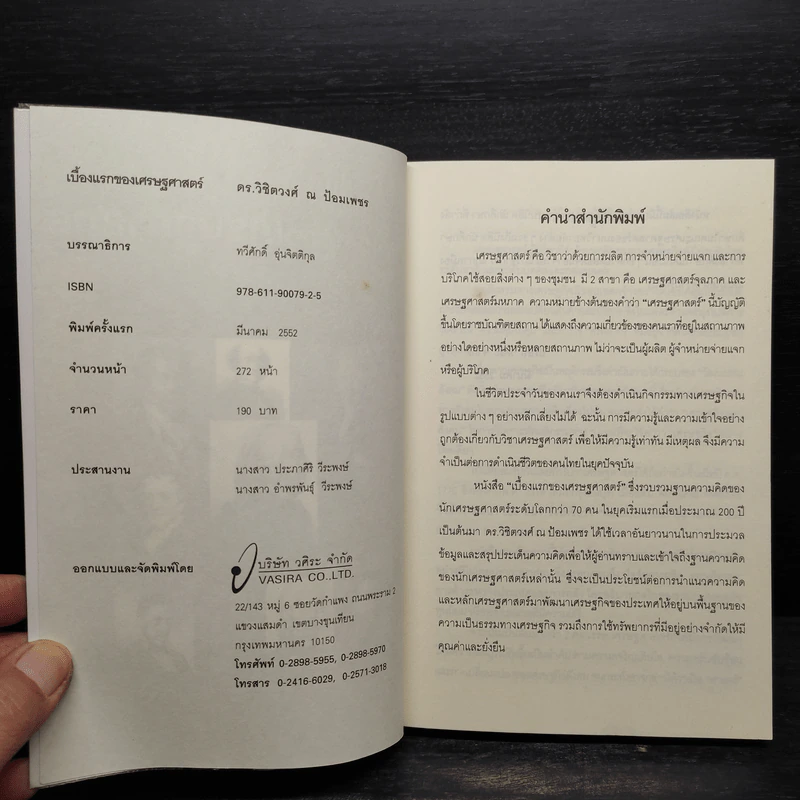 เบื้องแรกของเศรษฐศาสตร์ ดร.วิชิตวงศ์ ณ ป้อมเพชร
บรรณาธิการ ทวีศักดิ์ อุ่นจิตติกุล
ISBN 978-611-90079-2-5
พิมพ์ครั้งแรก มีนาคม 2552
จำนวนหน้า 272 หน้า
ราคา 190 บาท
ประสานงาน นางสาว ประภาศิริ วีระพงษ์
นางสาว อำพรพันธุ์ วีระพงษ์
ออกแบบและจัดพิมพ์โดย บริษัท วศิระ จำกัด
VASIRA CO.,LTD.
22/143 หมู่ 6 ซอยวัดกำแพง ถนนพระราม 2
แขวงแสมดำ เขตบางขุนเทียน
กรุงเทพมหานคร 10150
โทรศัพท์ 0-2898-5955, 0-2898-5970
โทรสาร 0-2416-6029, 0-2571-3018
คำนำสำนักพิมพ์
เศรษฐศาสตร์ คือ วิชาว่าด้วยการผลิต การจำหน่ายจ่ายแจก และการ
บริโภคใช้สอยสิ่งต่าง ๆ ของชุมชน มี 2 สาขา คือ เศรษฐศาสตร์จุลภาค และ
เศรษฐศาสตร์มหภาค ความหมายข้างต้นของคำว่า “เศรษฐศาสตร์” นี้บัญญัติ
ขึ้นโดยราชบัณฑิตยสถาน ได้แสดงถึงความเกี่ยวข้องของคนเราที่อยู่ในสถานภาพ
อย่างใดอย่างหนึ่งหรือหลายสถานภาพ ไม่ว่าจะเป็นผู้ผลิต ผู้จำหน่ายจ่ายแจก
หรือผู้บริโภค
ในชีวิตประจำวันของคนเราจึงต้องดำเนินกิจกรรมทางเศรษฐกิจใน
รูปแบบต่าง ๆ อย่างหลีกเลี่ยงไม่ได้ ฉะนั้น การมีความรู้และความเข้าใจอย่าง
ถูกต้องเกี่ยวกับวิชาเศรษฐศาสตร์ เพื่อให้มีความรู้เท่าทัน มีเหตุผล จึงมีความ
จำเป็นต่อการดำเนินชีวิตของคนไทยในยุคปัจจุบัน
หนังสือ “เบื้องแรกของเศรษฐศาสตร์” ซึ่งรวบรวมฐานความคิดของ
นักเศรษฐศาสตร์ระดับโลกกว่า 70 คน ในยุคเริ่มแรกเมื่อประมาณ 200 ปี
เป็นต้นมา ดร.วิชิตวงศ์ ณ ป้อมเพชร ได้ใช้เวลาอันยาวนานในการประมวล
ข้อมูลและสรุปประเด็นความคิดเพื่อให้ผู้อ่านทราบและเข้าใจถึงฐานความคิด
ของนักเศรษฐศาสตร์เหล่านั้น ซึ่งจะเป็นประโยชน์ต่อการนำแนวความคิด
และหลักเศรษฐศาสตร์มาพัฒนาเศรษฐกิจของประเทศให้อยู่บนพื้นฐานของ
ความเป็นธรรมทางเศรษฐกิจ รวมถึงการใช้ทรัพยากรที่มีอยู่อย่างจำกัดให้มี
คุณค่าและยั่งยืน